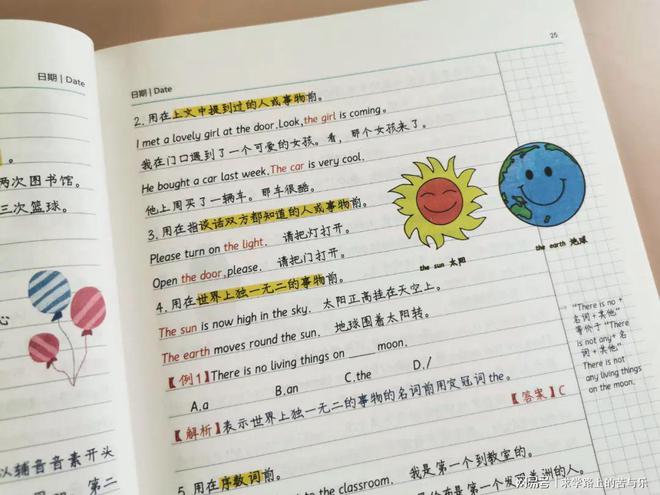 日期 | Date
。
两次图书馆。
三次篮球。
心
以辅音音素开头
第二
25
日期 | Date
2. 用在上文中提到过的人或事物前。
I met a lovely girl at the door, Look, the girl is coming.
我在门口遇到了一个可爱的女孩。看，那个女孩来了。
He bought a car last week. The car is very cool.
他上周买了一辆车。那车很酷。
3. 用在指谈话双方都知道的人或事物前。
Please turn on the light. 请把灯打开。
Open the door, please. 请把门打开。
4. 用在世界上独一无二的事物前。
The sun is now high in the sky. 太阳正高挂在天空上。
The earth moves round the sun. 地球围着太阳转。
【例1】There is no living things on ____ moon.
A.a B.an C.the D./
【解析】表示世界上独一无二的事物的名词前用定冠词the。
【答案】C
5. 用在序数词前。
to the classroom. 我是第一个到教室的。
the sun 太阳
the earth 地球
"There is no +
名词+其他"
等价于"There
is not any+名
词+其他"
There is not
any living things
on the moon.
搜狐号@求学路上的苦与乐